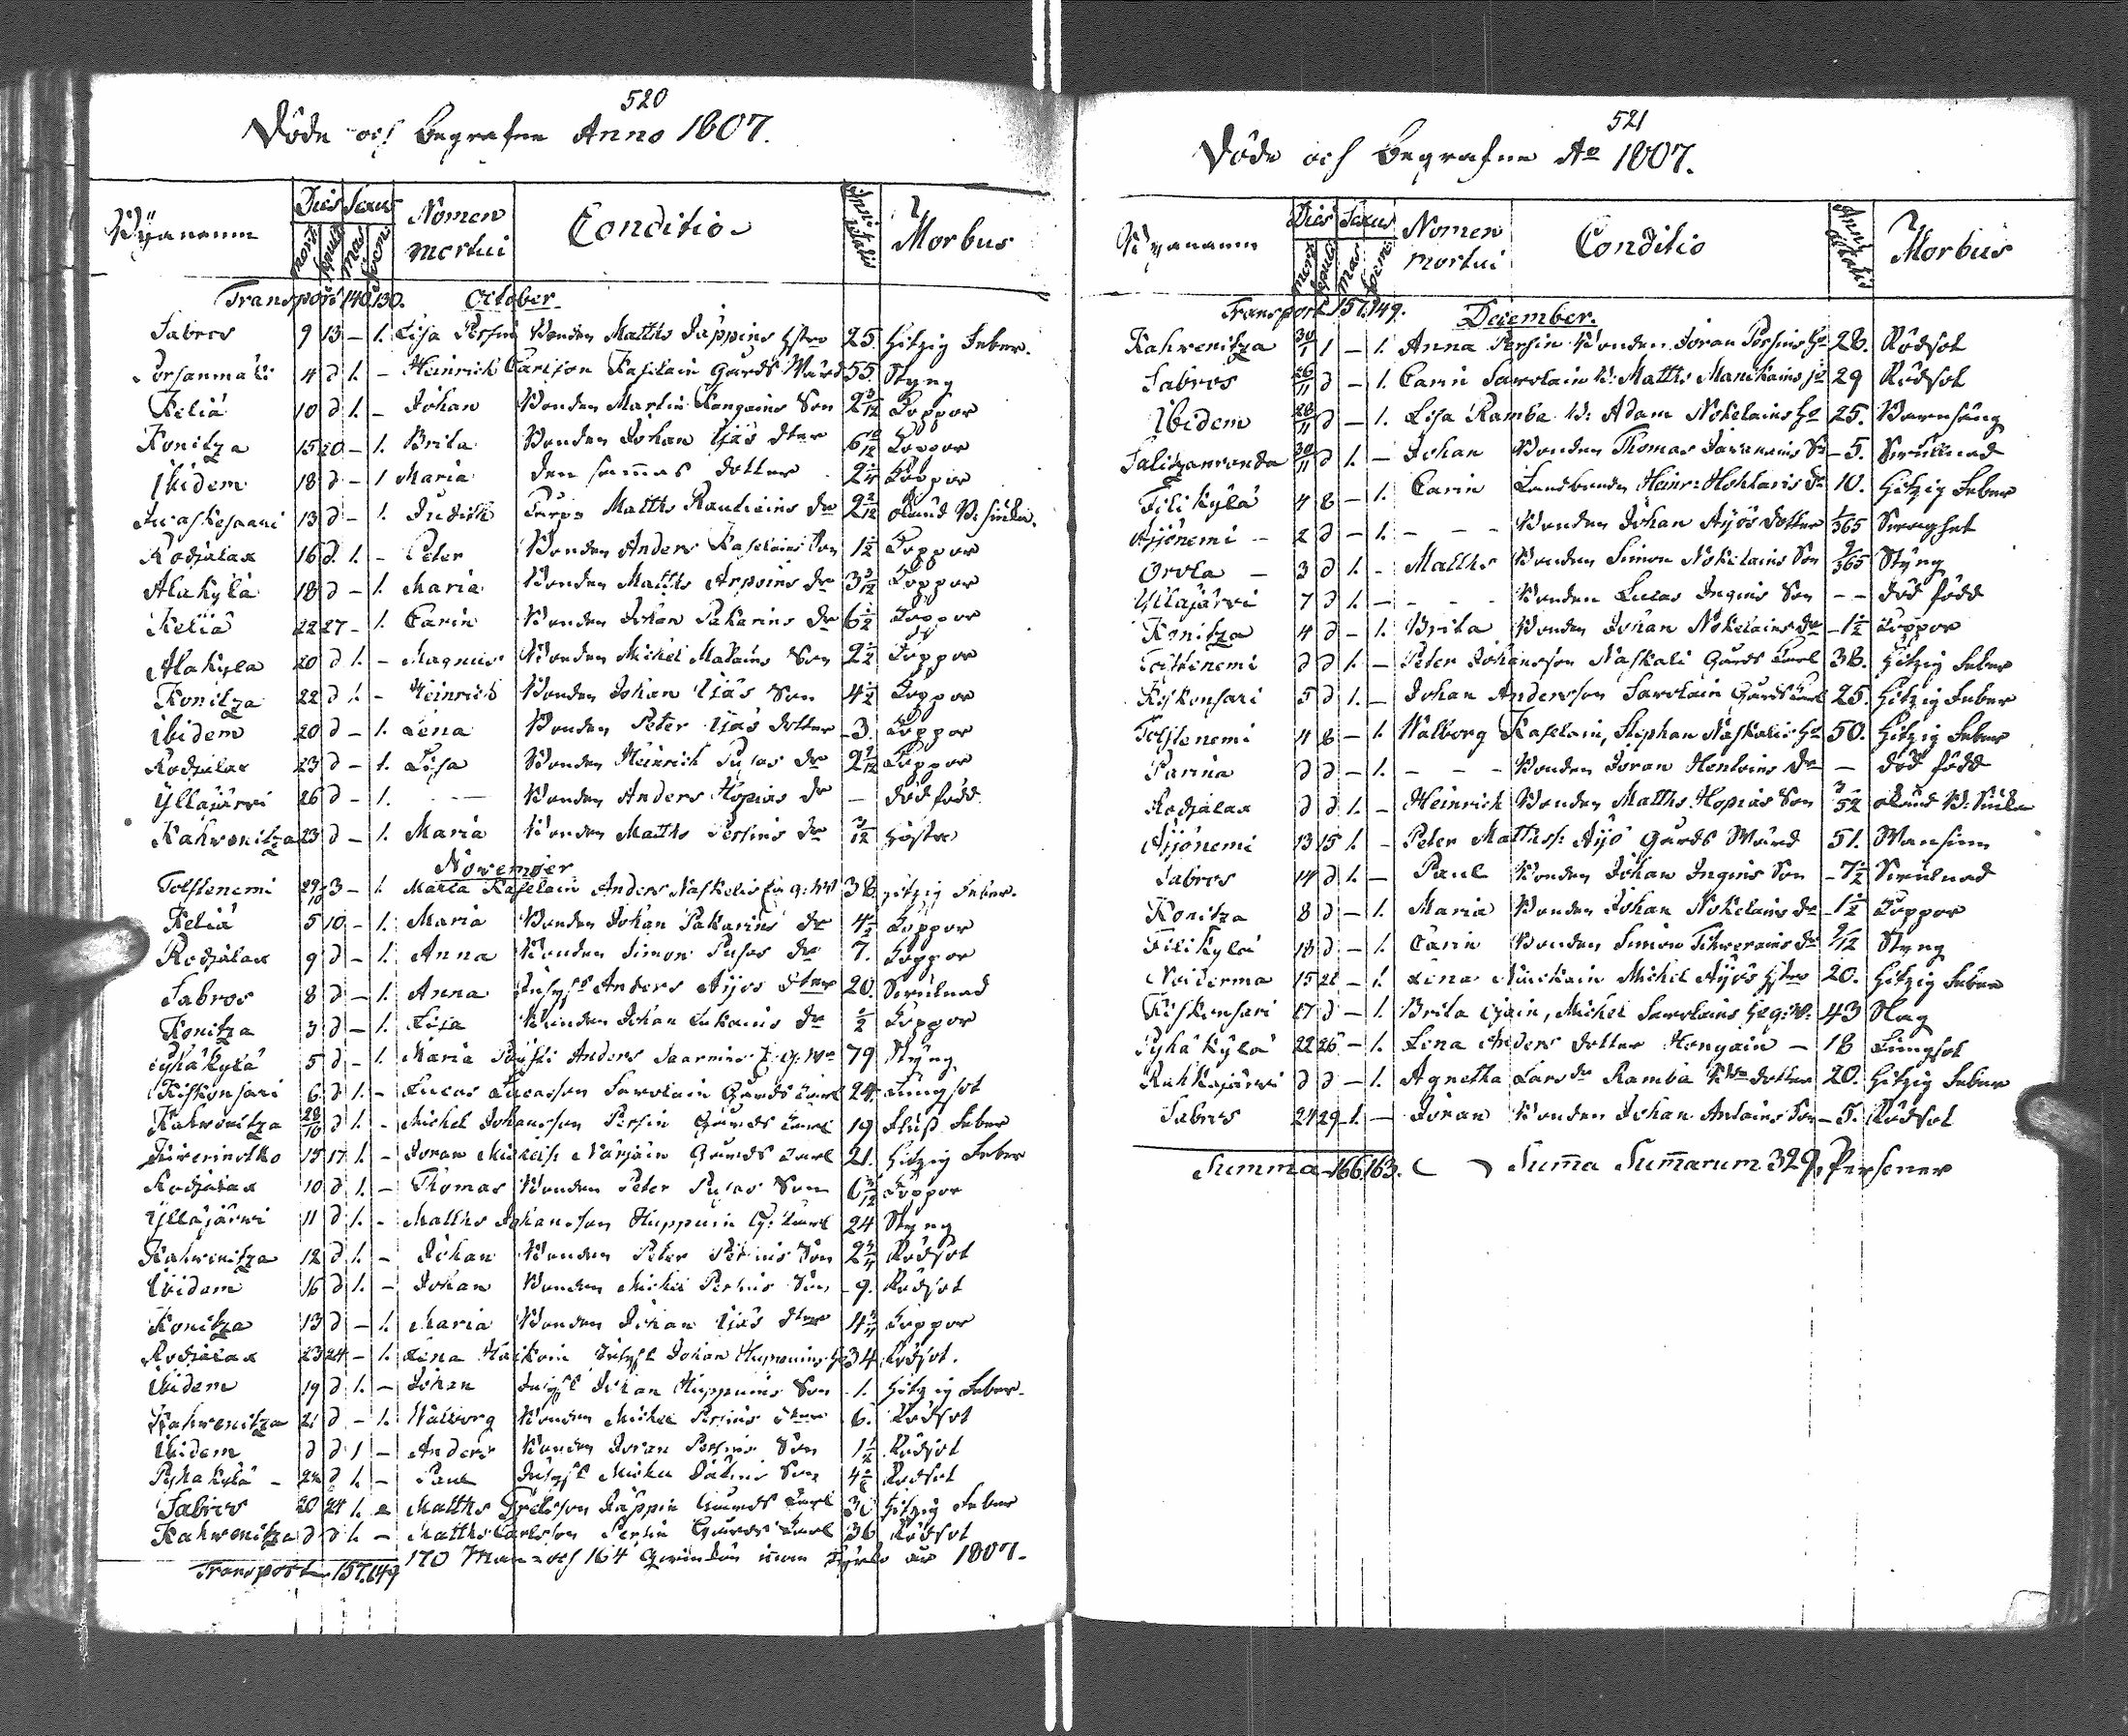 520
Döde och Begrafne Anno 1807.
Byanamn Dies Sexus Nomen mortui Conditio Anni ætatis Morbus
mort. sepult. mas. foem.
Transport 140. 130. October.
Sabros 9 13 – 1. Lisa Persin Bonden Matths Jäppins Hstro 25. Hitzig Feber.
Porsanmäki 4 d 1. – Heinrich Carlson Kaselain Gårds Wärd 55. Styng
Keliä 10 d 1. – Johan Bonden Martin Kongains Son Koppor
Konitza 15 20 – 1. Brita Bonden Johan Ijäs dter 6 10/12 Koppor
Ibidem 18 d – 1 Maria den sammas dotter Koppor
13 d – 1. Judith Matths dr 2 2/12 okänd B. siuka.
Rodjalax 16 d. 1. – Peter Bonden Anders Kaselains Son 1 1/2 Koppor
Alakylä 18 d – 1. Maria Bonden Matths Arpoins dr 3 3/12 Koppor
Keliä 22 27 – 1. Carin Bonden Johan Pakarins dr 6 1/2 Koppor
Alakyla 20 d 1. – Magnus Bonden Michel Malains Son 2 1/2 Koppor
Konitza 22 d 1. – Heinrich Bonden Johan Ijäs Son 4 1/2 Koppor
Ibidem 20 d – 1. Lena Bonden Peter Ijäs dotter – 3. Koppor
Rodjalax 23 d – 1. Lisa Bonden Heinrich Pusas dr 2 2/12 Koppor
Yllajärwi 26 d – 1. – – Bonden Anders Hopias dr – död född
Kahwenitza 23 d – 1. Maria Bonden Matths Persins dr 3/12 Hosta
November
Tolstenemi 29/10 3 – 1. Maria Kaselain Anders Naskalis 38 Hitzig Feber.
Keliä 5 10 – 1. Maria Bonden Johan Pakarins dr 4 1/2 Koppor
Rodjalax 9 d – 1. Anna Bonden Simon Pusas dr 7. Koppor
Sabros 8 d – 1. Anna Inhys Anders Äijös dter 20. Swullnad
Konitza 3 d – 1. Lisa Bonden Johan Lukains dr 1/2 Koppor
Pyhäkylä 5 d – 1. Maria Anders Saarnis 79 Styng
Kiskonsari 6. d 1. – Lucas Lucasson Sawolain Gårds Karl 24. Lungsot
Kahwenitza 28/10 d 1. – Michel Johansson Persin Gårds Karl 19 Fluss Feber
15 17 1. – Joran Michelss. Närjäin Gårds Karl 21. Hitzig Feber
Rodjalax 10 d 1. – Thomas Bonden Peter Pusas Son Koppor
Yllajärwi 11 d 1. – Matths Johansson Huppuin G: Karl 24 Styng
Kahwenitza 12 d 1. – Johan Bonden Peter Persins Son Rödsot
Ibidem 16 d 1. – Johan Bonden Michel Persins Son – 9. Rödsot
Konitza 13 d – 1. Maria Bonden Johan Ijäs dter Koppor
Rodjalax 23 24 – 1. Lena Inhys Johan Huppuins 34 Rödsot.
Ibidem 19 d 1. – Johan Inhys Johan Huppuins Son 1. Hitzig Feber.
Kahwenitza 21 d – 1. Walborg Bonden Michel Persins dter 6. Rödsot
Ibidem d d 1 – Anders Bonden Joran Persins Son Rödsot
Pyhakylä – 24 d 1. – Paul Inhys Michel Son Rödsot
Sabros 20 24 1. – Matths Jäppin Gårds Karl Hitzig Feber
Kahwenitza d d 1. – Matths Carlsson Persin Gårds Karl 36 Rödsot
Transport – 157. 149 170 Man – och 164 Qwinkön inom år 1807.
521
Döde och Begrafne Ao 1807.
Byanamn Dies Sexus Nomen mortui Conditio Anni ætatis Morbus
mort. sepult. mas. foem.
Transport 157. 149. December.
Kahwenitza 30/1 1 – 1. Anna Persin Bonden Joran Persins Ho 28. Rödsot
Sabros 26/11 d – 1. Carin Sawolain B: Matths Manikains Ho 29 Rödsot
Ibidem 28/11 d – 1. Lisa Ramba B: Adam Nokelains Ho 25. Barnsäng
Salitzanranda 30/11 d 1. – Johan Bonden Thomas Son – 5. Swullnad
Filikylä 4 8 – 1. Carin Landbonden Heinr: dr 10. Hitzig Feber
Äijönemi – 2 d – 1. – – – Bonden Johan Äijös dotter 1/365 Swaghet
Orola – 3 d 1. – Matths Bonden Simon Nokelains Son 9/365 Styng
Yllajärwi 7 d 1. – – – – Bonden Lucas Ingins Son – – död född
Konitza 4 d – 1. Brita Bonden Johan Nokelains dr – 1 1/2 Koppor
Tolstenemi d d 1. – Peter Johansson Naskali Gårds Karl 38. Hitzig Feber
Kiskonsari 5 d 1. – Johan Andersson Sawolain Gårds Karl 25. Hitzig Feber
Tolstenemi 4 8 – 1. Walborg Kaselain, Stephan Naskalis Ho 50. Hitzig Feber
Parina d d – 1. – – – Bonden Joran Henloins dr – död född
Rodjalax d d 1. – Heinrich Bonden Matths Hopias Son 3/52 okänd B: Siuka
Äijönemi 13 15 1. – Peter Mathss: Äijö Gårds Wärd 51. Wansinn
Sabros 14 d 1. – Paul Bonden Johan Ingins Son – 7 1/2 Swulnad
Konitza 8 d – 1. Maria Bonden Johan Nokelains dr – 1 1/2 Koppor
Filikylä 18 d – 1. Carin Bonden Simon Tihwerains dr 9/12 Styng
Noiderma 15 22 – 1. Lena Michel Äijös Hstro 20. Hitzig Feber
Kiskonsari 17 d – 1. Brita Michel Sawolains 43 Slag
Pyhäkylä 22 26 – 1. Lena Anders dotter Hongain – 18 Lungsot
d d – 1. Agnetha Lars dr Ramba dotter 20. Hitzig Feber
Sabros 24 29 1. – Joran Bonden Johan Antains Son – 5. Rödsot
Summa – 166. 163. Suma Sumarum 329. Personer